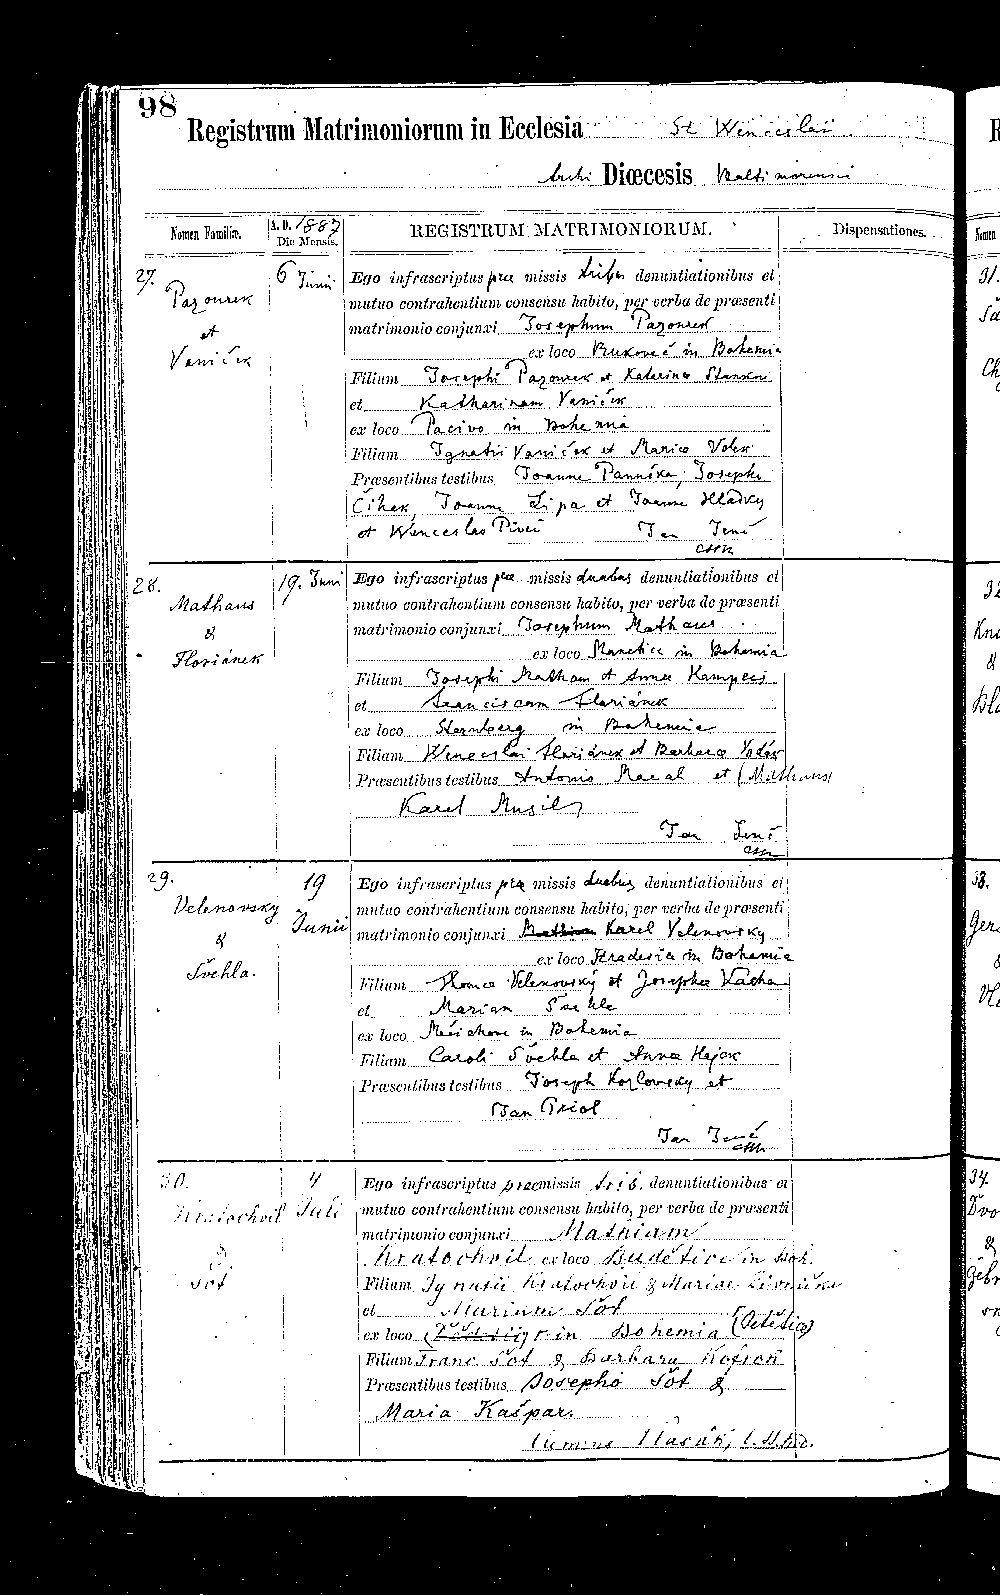 98
Registrum Matrimoniorum in Ecclesia St Wenceslai
Archi Diœcesis Baltimorensis
Nomen Familiæ.
A. D. 1887
Die Mensis.
REGISTRUM MATRIMONIORUM.
Dispensationes.
27.
Pazourek
et
Vaniček
6 Junii
Ego infrascriptus præ missis tribus denuntiationibus et
mutuo contrahentium consensu habito, per verba de præsenti
matrimonio conjunxi Josephum Pazourek
ex loco in Bohemia
Filium Josephi Pazourek et Katarina
et Katharinam Vaniček
ex loco Pacivo in Bohemia
Filiam Ignatii Vaniček et Maria Volek
Præsentibus testibus Joanne Panuška, Josepho
Čihak, Joanne Lipa et Joanne Hladky
et Wenceslao
Jan Jenč
CSSR
28.
Mathaus
&
Floriánek
19. Juni
Ego infrascriptus præ missis duabus denuntiationibus et
mutuo contrahentium consensu habito, per verba de præsenti
matrimonio conjunxi Josephum Mathaus
ex loco Manetice in Bohemia
Filium Josephi Mathaus et Annae
et Franciscam Floriánek
ex loco Sternberg in Bohemia
Filiam Wenceslai Floriánek et Barbara
Præsentibus testibus Antonio Macal et (Mathaus
Karel Musil)
Jan Jenč
CSSR
29.
Velenovsky
&
Švehla.
19
Junii
Ego infrascriptus præ missis duabus denuntiationibus et
mutuo contrahentium consensu habito, per verba de præsenti
matrimonio conjunxi Karel Velenovsky
ex loco Hradesic in Bohemia
Filium Velenovský et Josepha Vacha
et Mariam Švehla
ex loco in Bohemia
Filiam Caroli Švehla et Anna Hajek
Præsentibus testibus Joseph Kozlovsky et
Jan
Jan Jenč
CSSR
30.
Kratochvil
&
Šot
4
Juli
Ego infrascriptus præmissis trib. denuntiationibus et
mutuo contrahentium consensu habito, per verba de præsenti
matrimonio conjunxi Mathiam
Kratochvil ex loco Budětice in Boh.
Filium Ignatii Kratochvil & Mariae
et Mariam Šot
ex loco in Bohemia
Filiam Franc Šot & Barbara
Præsentibus testibus Josepho Šot &
Maria Kašpar.
31.
33.
34.